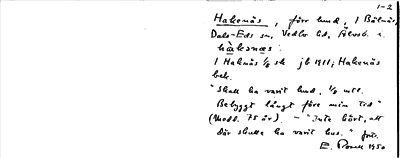 1-2
Hakenäs, förr lund, 1 Bölnäs,
Dals-Eds sn, Vedbo hd, Älvsb. l.
1 Haknäs 1/6 sk jb 1911; Hakenäs
bek.
"Skall ha varit lund. 1/6 mtl.
Bebyggt långt före min tid"
(Medd. 75 år). – "Inte hört, att
där skulle ha varit hus."
E. 1950